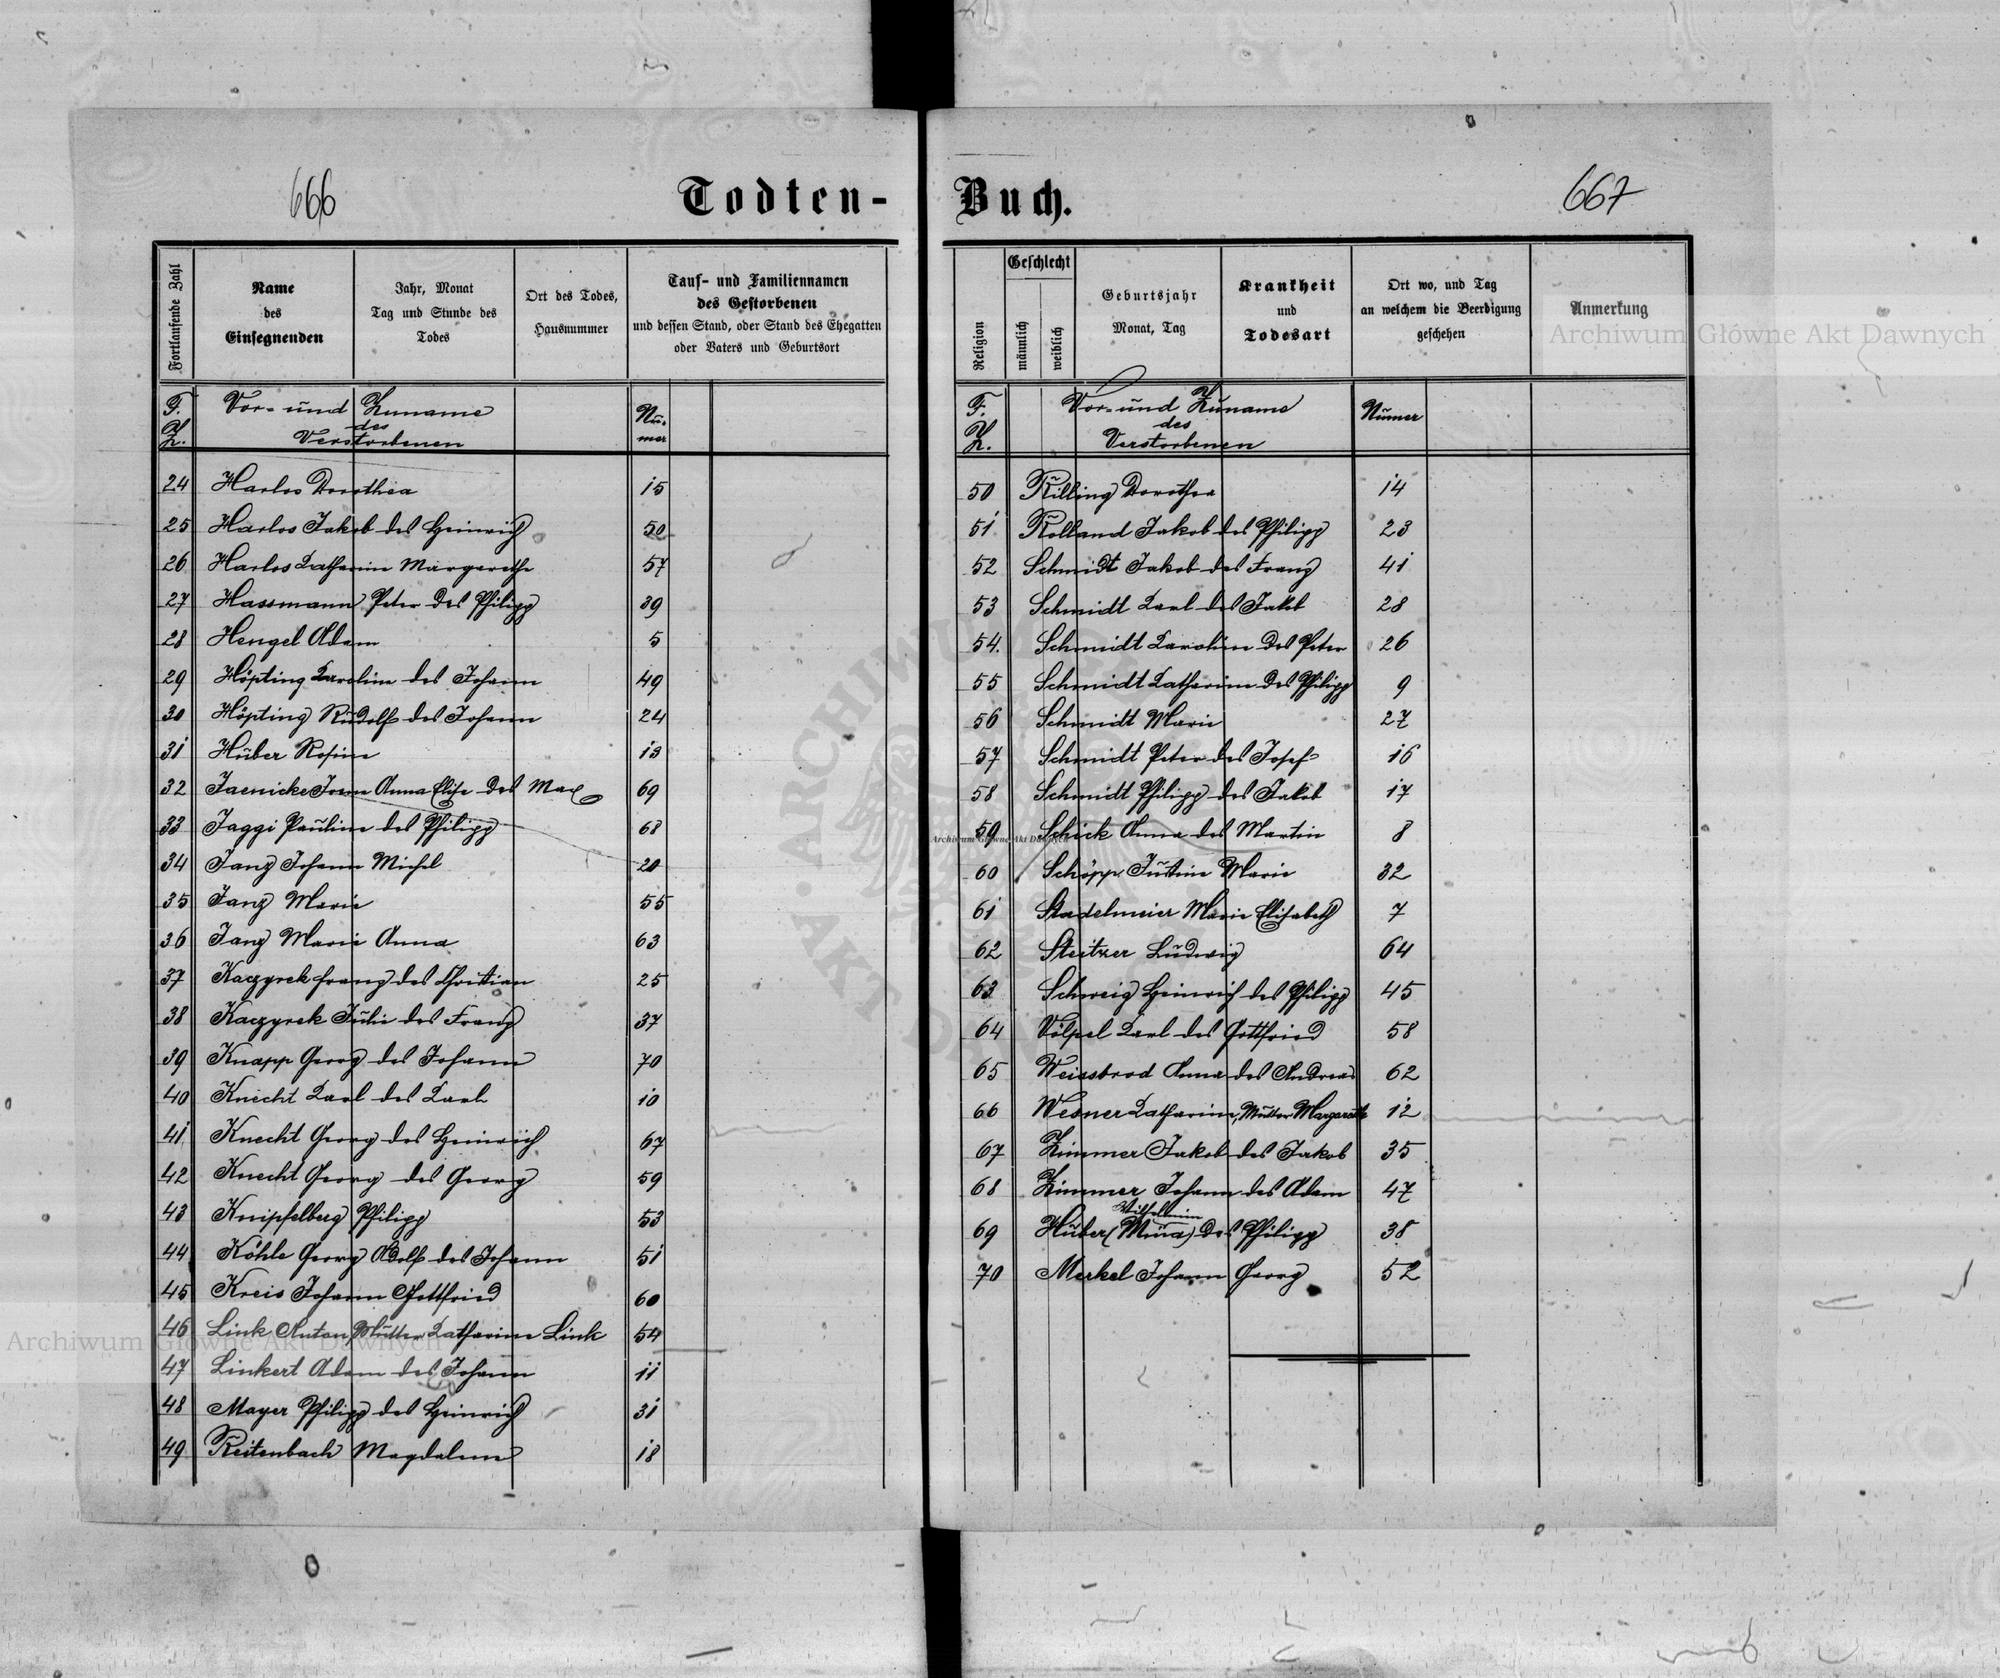 666
Todten-
Fortlaufende Zahl
Name
des
Einsegnenden
Jahr, Monat
Tag und Stunde des
Todes
Ort des Todes,
Hausnummer
Tauf- und Familiennamen
des Gestorbenen
und dessen Stand, oder Stand des Ehegatten
oder Vaters und Geburtsort
F. Z.
Vor- und Zuname
des
Verstorbenen
Nu-
mer
24 Harlos Dorothea 15
25 Harlos Jakob des Heinrich 50
26 Harlos Katharine Margarethe 57
27 Hassmann Peter des Philipp 39
28 Hengel Adam 5
29 Höpting Karoline des Johann 49
30 Höpting Rudolf des Johann 24
31 Huber Rosine 13
32 Jaenicke Irene Anna Elise des Max 69
33 Jaggi Pauline des Philipp 68
34 Janz Johann Michel 20
35 Janz Marie 55
36 Janz Marie Anna 63
37 Kaczyrek Franz des Christian 25
38 Kaczyrek Julie des Franz 37
39 Knapp Georg des Johann 70
40 Knecht Karl des Karl 10
41 Knecht Georg des Heinrich 67
42 Knecht Georg des Georg 59
43 Knipfelberg Philipp 53
44 Köhle Georg Adolf des Johann 51
45 Kreis Johann Gottfried 60
46 Link Anton, Mutter Katharine Link 54
47 Linkert Adam des Johann 11
48 Mayer Philipp des Heinrich 31
49 Reitenbach Magdalene 18
667
Buch.
Religion
Geschlecht
männlich
weiblich
Geburtsjahr
Monat, Tag
Krankheit
und
Todesart
Ort wo, und Tag
an welchem die Beerdigung
geschehen
Anmerkung
F. Z.
Vor- und Zuname
des
Verstorbenen
Numer
50 Rilling Dorothea 14
51 Rolland Jakob des Philipp 23
52 Schmidt Jakob des Franz 41
53 Schmidt Karl des Jakob 28
54. Schmidt Karoline des Peter 26
55 Schmidt Katharine des Philipp 9
56 Schmidt Marie 27
57 Schmidt Peter des Josef 16
58 Schmidt Philipp des Jakob 17
59 Schick Anna des Martin 8
60 Schöpp Justine Marie 32
61 Stadelmeier Marie Elisabeth 7
62 Steitzer Ludwig 64
63 Schweig Heinrich des Philipp 45
64 Völpel Karl des Gottfried 58
65 Weissbrod Anna des Andreas 62
66 Wesner Katharine, Mutter Margarethe 12
67 Zimmer Jakob des Jakob 35
68 Zimmer Johann des Adam 47
Wilhelmine
69 Huber (Mina) des Philipp 38
70 Merkel Johann Georg 52
Archiwum Główne Akt Dawnych
Archiwum Główne Akt Dawnych
Archiwum Główne Akt Dawnych